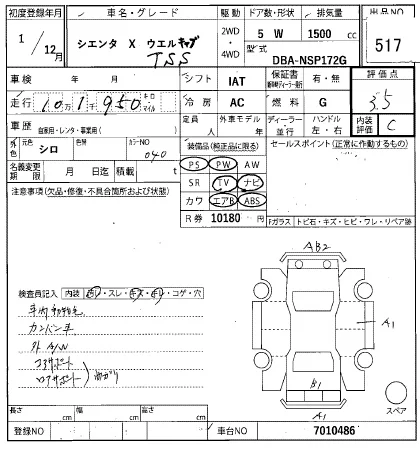 初度登録年月 車名・グレード 駆動 ドア数・形状 排気量 出品NO
1/12月 シエンタ X ウエルキャブ TSS 2WD・4WD 5 W 1500 cc 517
型式 DBA-NSP172G
車検 年 月 シフト IAT 保証書 有・無 評価点
走行 10万1千950 キロ マイル 冷房 AC 燃料 G 3.5
車歴 自家用・レンタ・事業用( ) 定員 人 外車モデル 年 ディーラー 並行 ハンドル 左・右 内装評価 C
外色 元色 シロ 色替 カラーNO 040 装備品(純正品に限る) セールスポイント(正常に作動するもの)
名義変更期限 月 日迄 積載 t PS PW AW
注意事項(欠品・修復・不具合箇所および状態) SR TV ナビ
カワ エアB ABS
R券 10180 円
Fガラス トビ石・キズ・ヒビ・ワレ・リペア跡
AB2
検査員記入 内装 ヨゴレ・スレ・キズ・キレ・コゲ・穴
A1
カンバン车
外 A1/U1
コアサポート
ロアサポート
B1
長さ cm 幅 cm 高さ cm A1 スペア
登録NO 車台NO 7010486